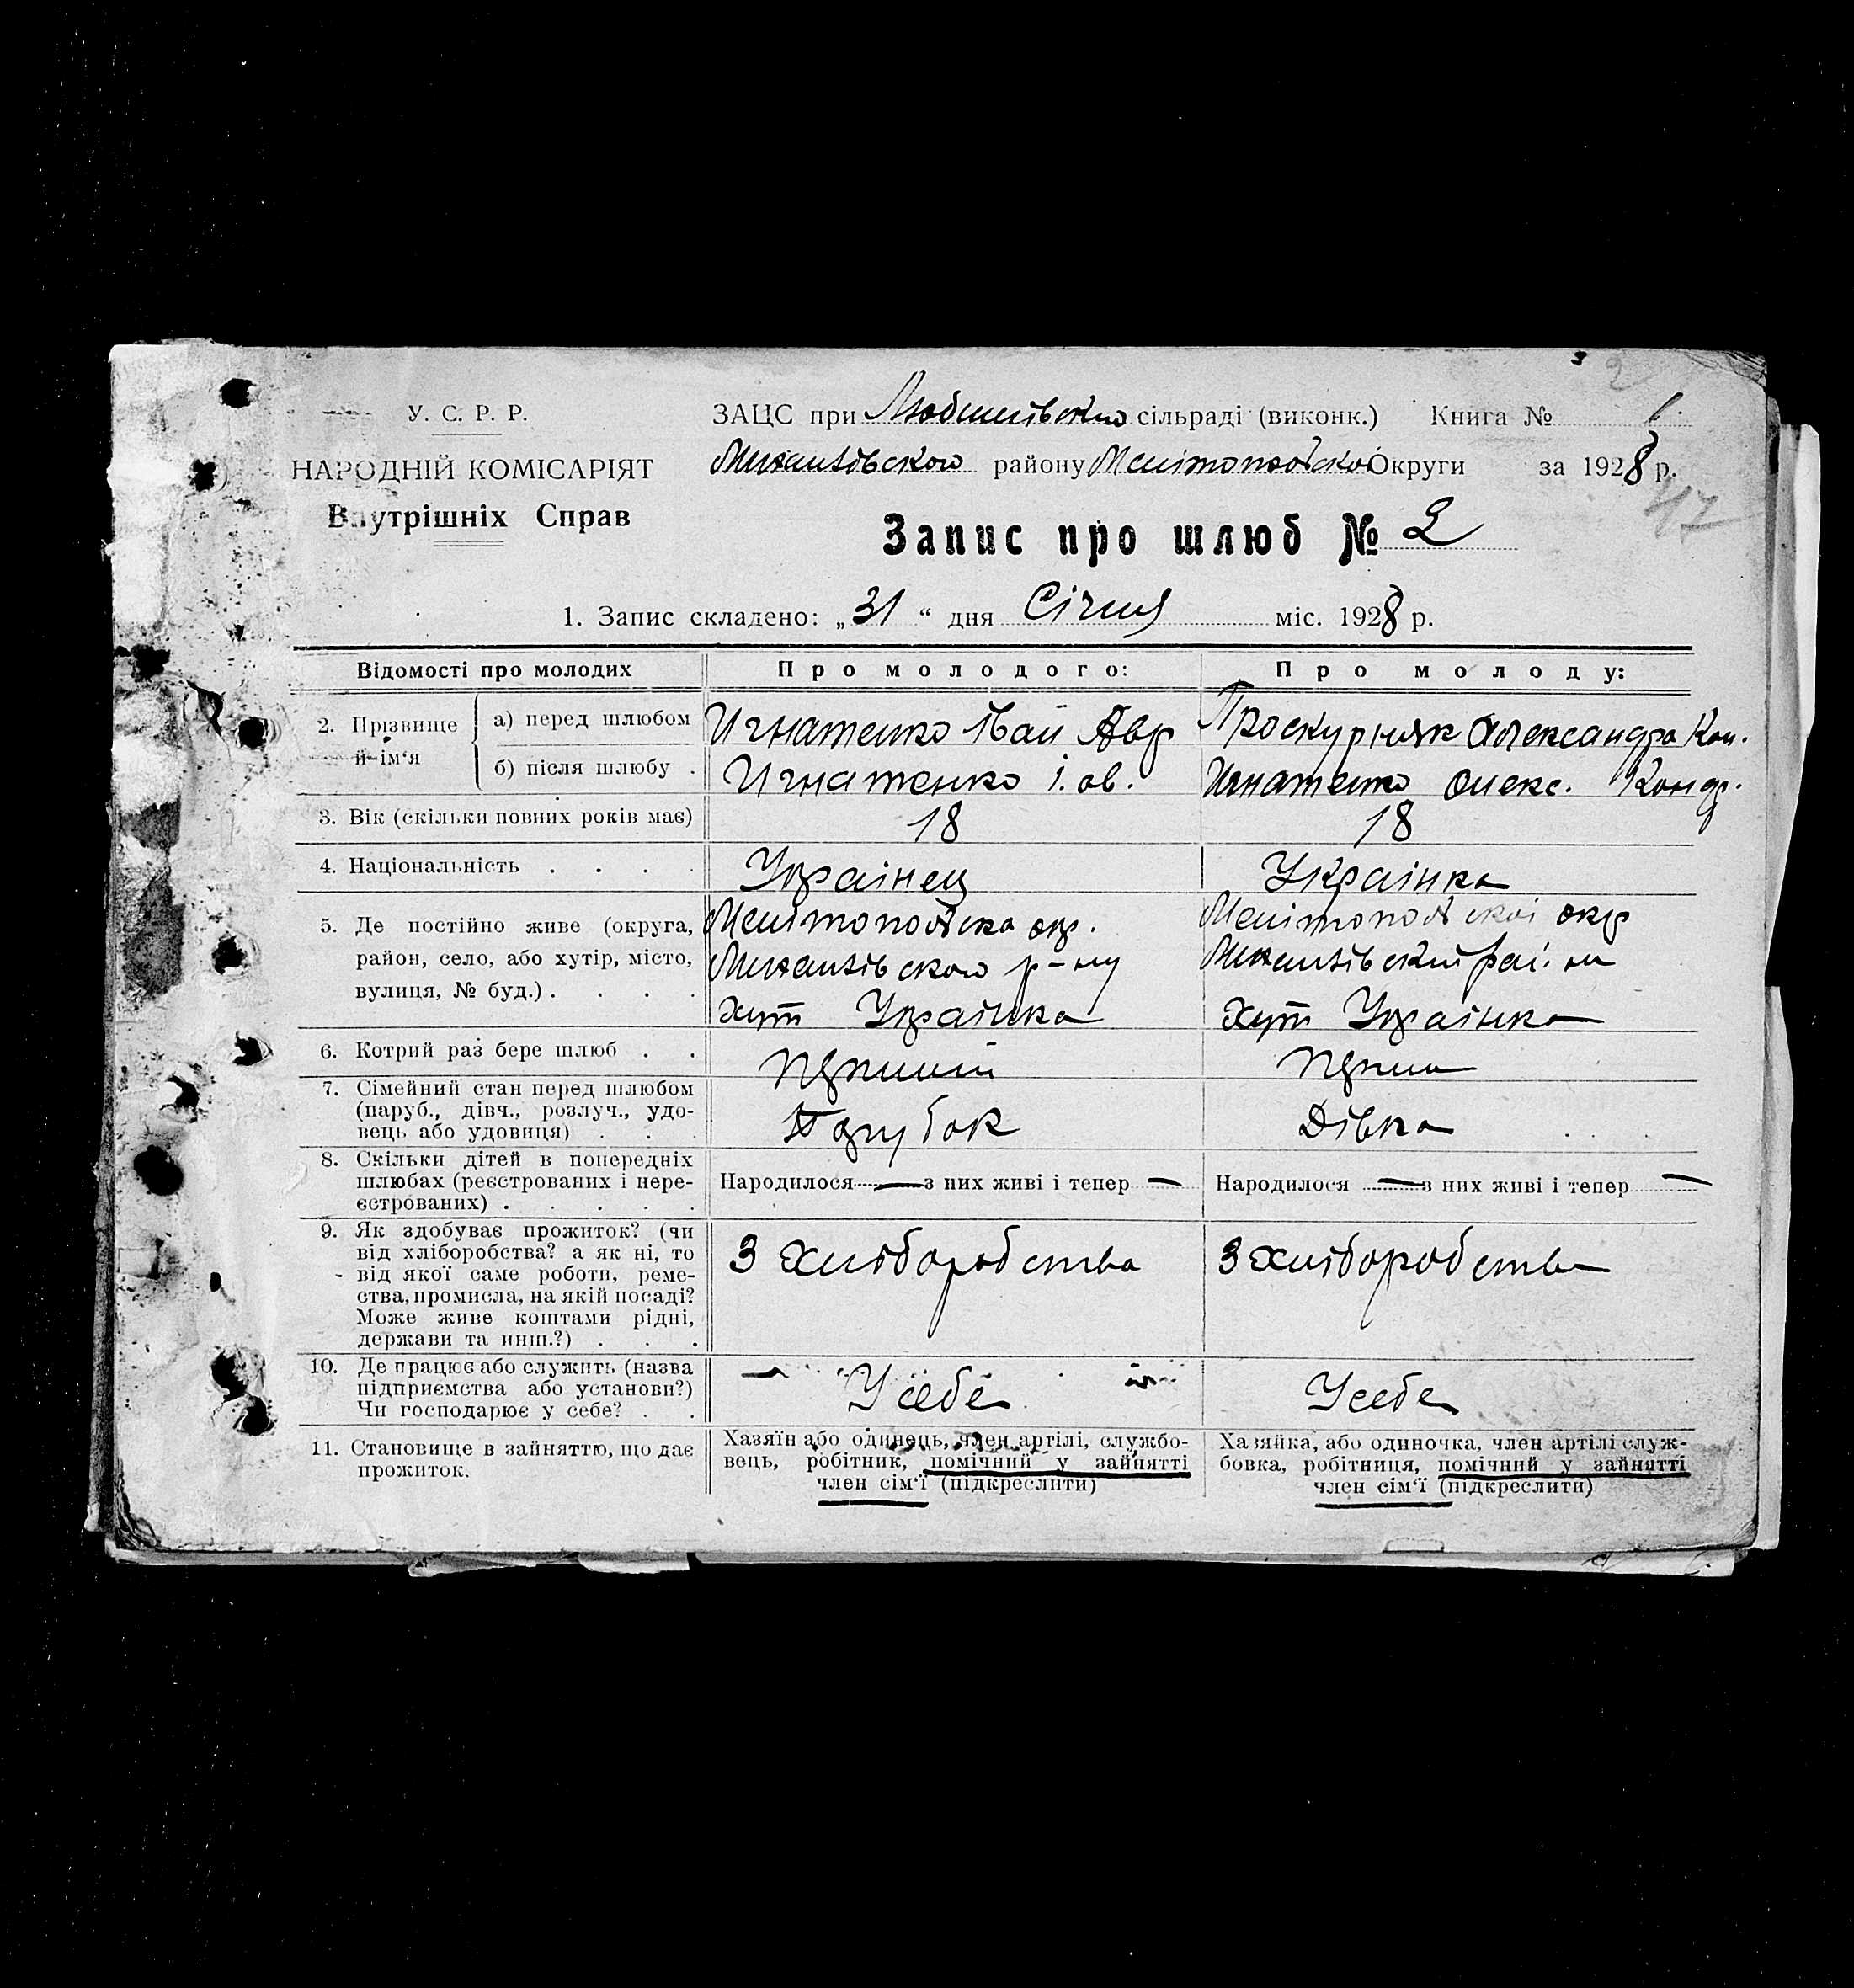 У. С. Р. Р.
НАРОДНІЙ КОМІСАРІЯТ
Внутрішніх Справ
ЗАЦС при сільраді (виконк.) Книга № 1.
Михайлівського району Мелітопольської Округи за 1928 р.
47
Запис про шлюб № 2
1. Запис складено: „31“ дня Січня міс. 1928 р.
Відомості про молодих Про молодого: Про молоду:
2. Прізвище й ім‘я а) перед шлюбом Игнатенко Авр Проскурняк Александра Кон.
б) після шлюбу . Игнатенко І. ав. Игнатенко Олекс. Кондр.
3. Вік (скільки повних років має) 18 18
4. Національність . . . . Українец Українка
5. Де постійно живе (округа, Мелітопольска окр. Мелітопольскоі окр
район, село, або хутір, місто, Михайлівского р-ну Михайлівский рай.
вулиця, № буд.) . . . . хут Українка хут Українка
6. Котрий раз бере шлюб . . перший перша
7. Сімейний стан перед шлюбом
(паруб., дівч., розлуч., удо-
вець або удовиця) . . . Парубок Дівка
8. Скільки дітей в попередніх
шлюбах (реєстрованих і нере- Народилося — з них живі і тепер — Народилося — з них живі і тепер —
єстрованих) . . . . .
9. Як здобуває прожиток? (чи
від хліборобства? а як ні, то З хліборобства З хліборобства
від якої саме роботи, реме-
ства, промисла, на якій посаді?
Може живе коштами рідні,
держави та инш.?) . . .
10. Де працює або служить (назва
підприємства або установи?) У себе У себе
Чи господарює у себе? . .
11. Становище в зайняттю, що дає
прожиток.
Хазяїн або одинець, член артілі, службо-
вець, робітник, помічний у зайнятті
член сім‘ї (підкреслити)
Хазяйка, або одиночка, член артілі служ-
бовка, робітниця, помічний у зайнятті
член сім‘ї (підкреслити)